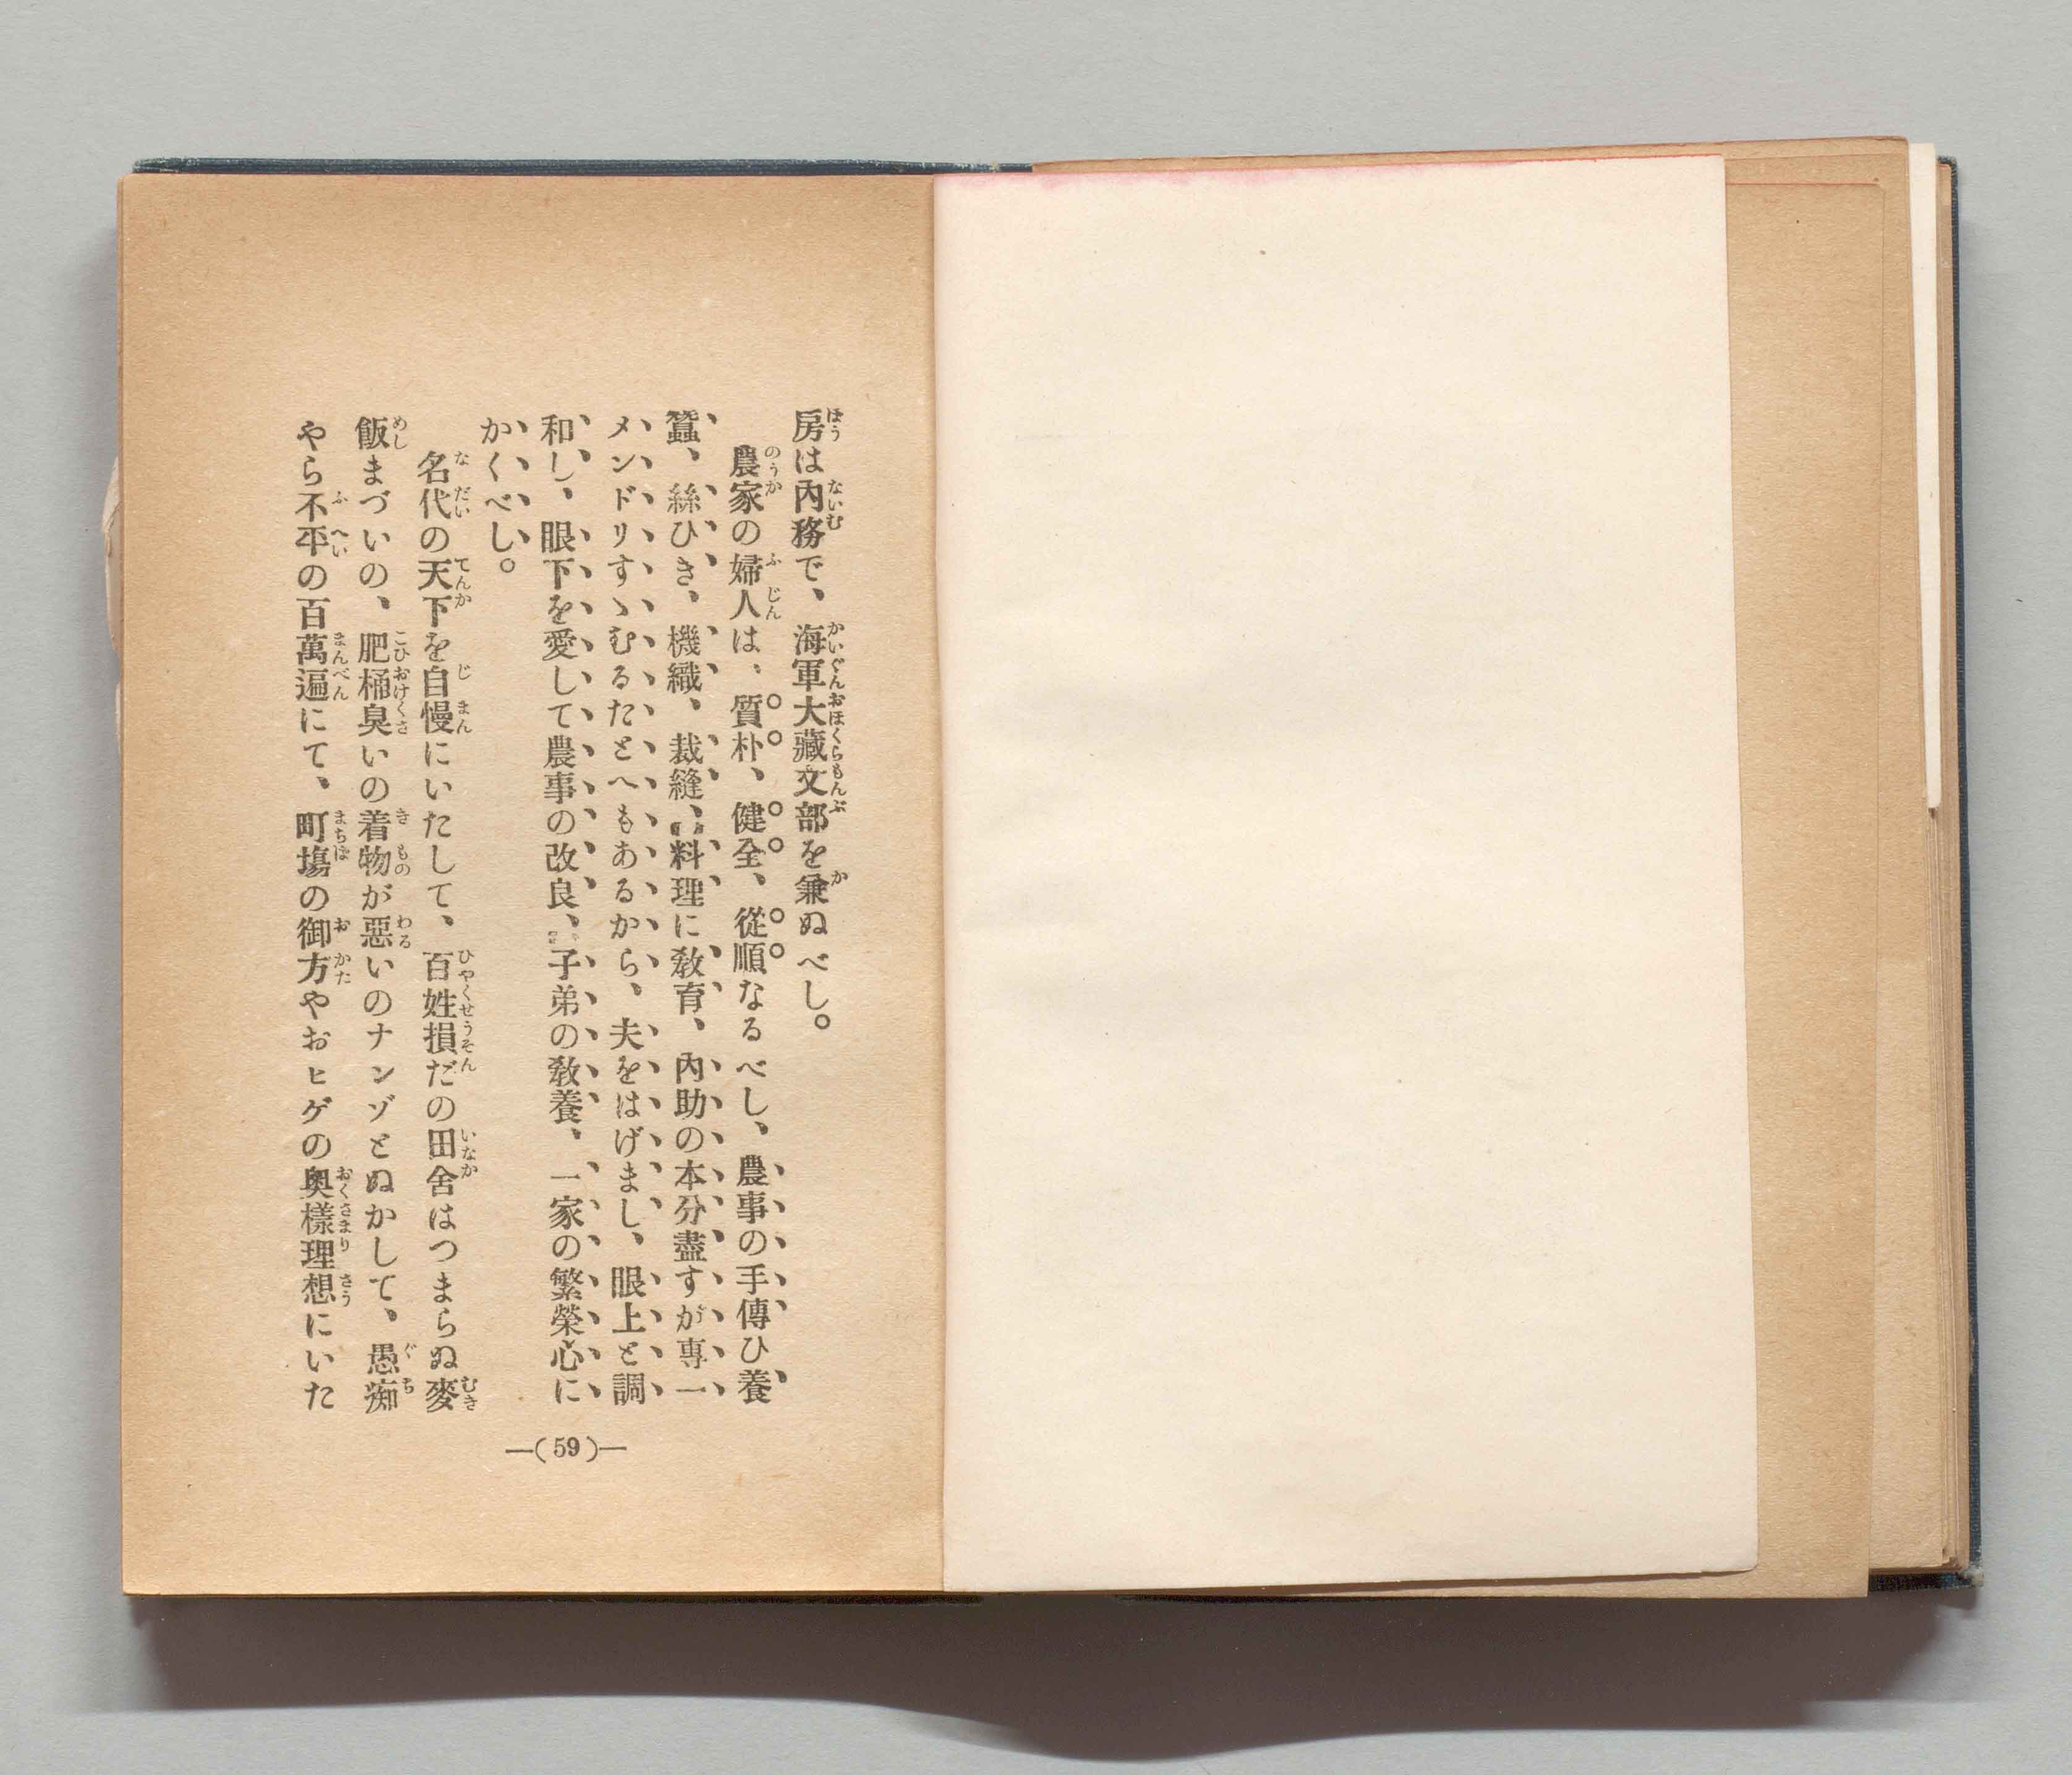 房は內務で、海軍大藏文部を兼ぬべし。
農家の婦人は、質朴、健全、從順なるべし、農事の手傳ひ養
蠶、絲ひき、機織、裁縫、料理に敎育、內助の本分盡すが專一
メンドリすゝむるたとへもあるから、夫をはげまし、眼上と調
和し、眼下を愛して農事の改良、子弟の敎養、一家の繁榮心に
かくべし。
名代の天下を自慢にいたして、百姓損だの田舍はつまらぬ麥
飯まづいの、肥桶臭いの着物が惡いのナンゾとぬかして、愚痴
やら不平の百萬遍にて、町塲の御方やおヒゲの奧樣理想にいた
—(59)—